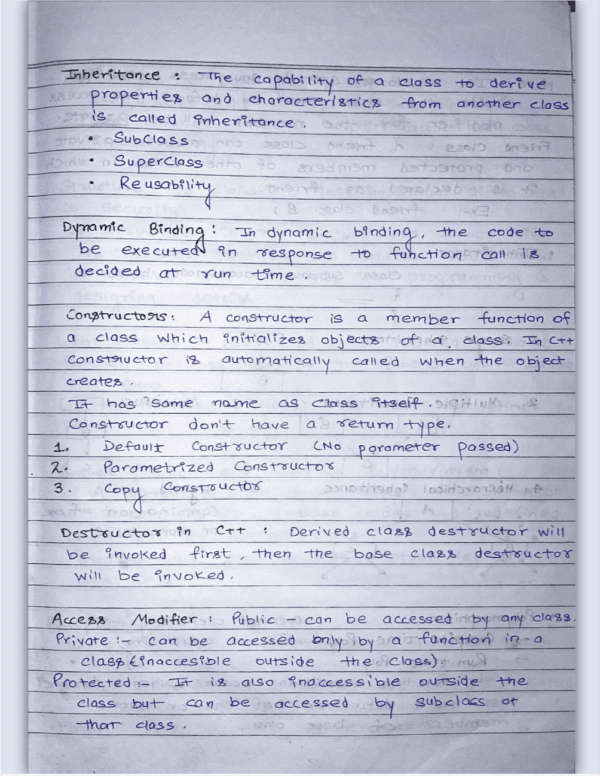 Inheritance : The capability of a class to derive
properties and characteristics from another class
is called inheritance.
• SubClass
• SuperClass
• Reusability
Dynamic Binding : In dynamic binding, the code to
be executed in response to function call is
decided at run time.
Constructors : A constructor is a member function of
a class which initializes objects of a class. In C++
constructor is automatically called when the object
creates.
It has same name as class itself.
Constructor don't have a return type.
1. Default Constructor (No parameter passed)
2. Parametrized Constructor
3. Copy Constructor
Destructor in C++ : Derived class destructor will
be invoked first, then the base class destructor
will be invoked.
Access Modifier : Public - can be accessed by any class.
Private :- can be accessed only by a function in a
class (inaccesible outside the class).
Protected :- It is also inaccessible outside the
class but can be accessed by subclass of
that class.